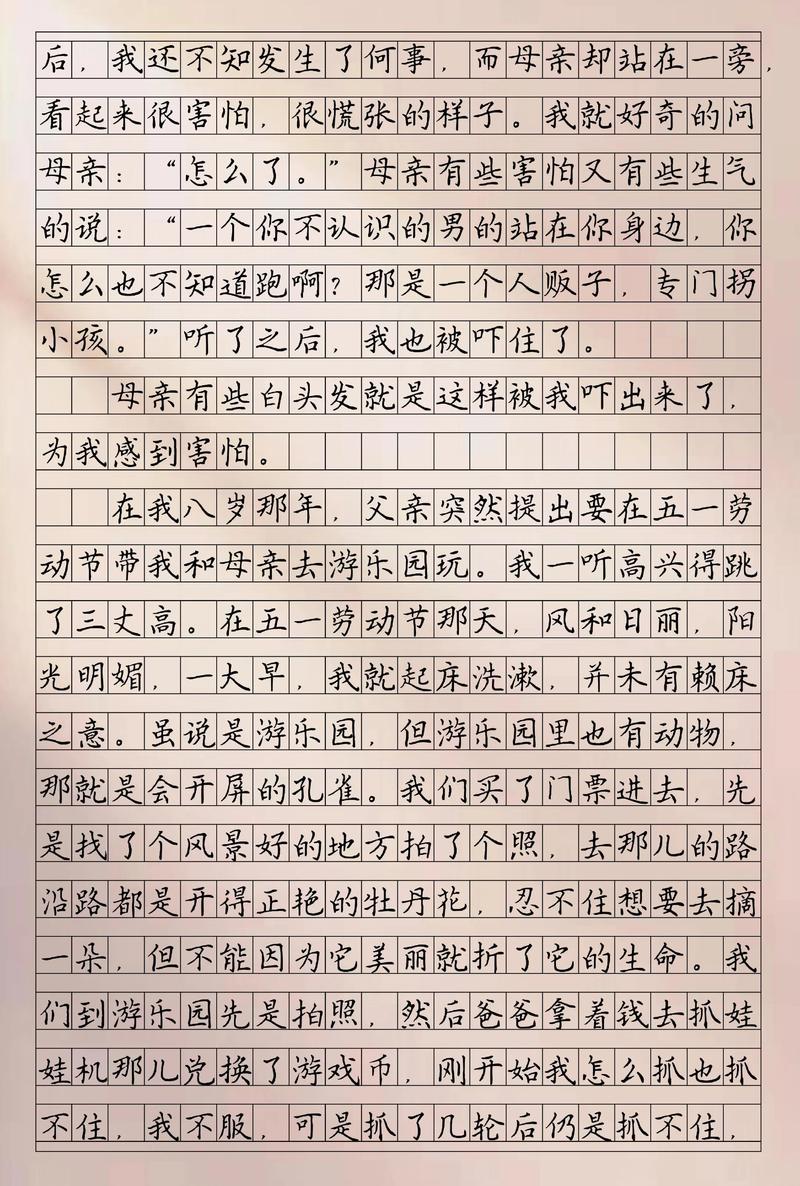 后，我还不知发生了何事，而母亲却站在一旁，
看起来很害怕，很慌张的样子。我就好奇的问
母亲：“怎么了。”母亲有些害怕又有些生气
的说：“一个你不认识的男的站在你身边，你
怎么也不知道跑啊？那是一个人贩子，专门拐
小孩。”听了之后，我也被吓住了。
母亲有些白头发就是这样被我吓出来了，
为我感到害怕。
在我八岁那年，父亲突然提出要在五一劳
动节带我和母亲去游乐园玩。我一听高兴得跳
了三丈高。在五一劳动节那天，风和日丽，阳
光明媚，一大早，我就起床洗漱，并未有赖床
之意。虽说是游乐园，但游乐园里也有动物，
那就是会开屏的孔雀。我们买了门票进去，先
是找了个风景好的地方拍了个照，去那儿的路
沿路都是开得正艳的牡丹花，忍不住想要去摘
一朵，但不能因为它美丽就折了它的生命。我
们到游乐园先是拍照，然后爸爸拿着钱去抓娃
娃机那儿兑换了游戏币，刚开始我怎么抓也抓
不住，我不服，可是抓了几轮后仍是抓不住，